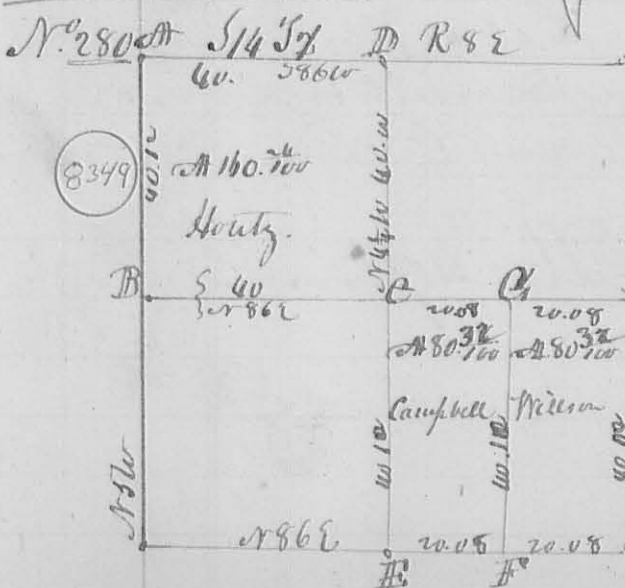 No. 280 A S14 T7 D R 8 E
40. S86W
8349
40.12
A 160.24/100
N4¼W 40.10
Houtz.
B 40 C G
N86E 20.08 20.08
A 80.32/100 A 80.32/100
Campbell Willson
40.12 40.12 40.12
N5W
N86E 20.08 20.08
E F